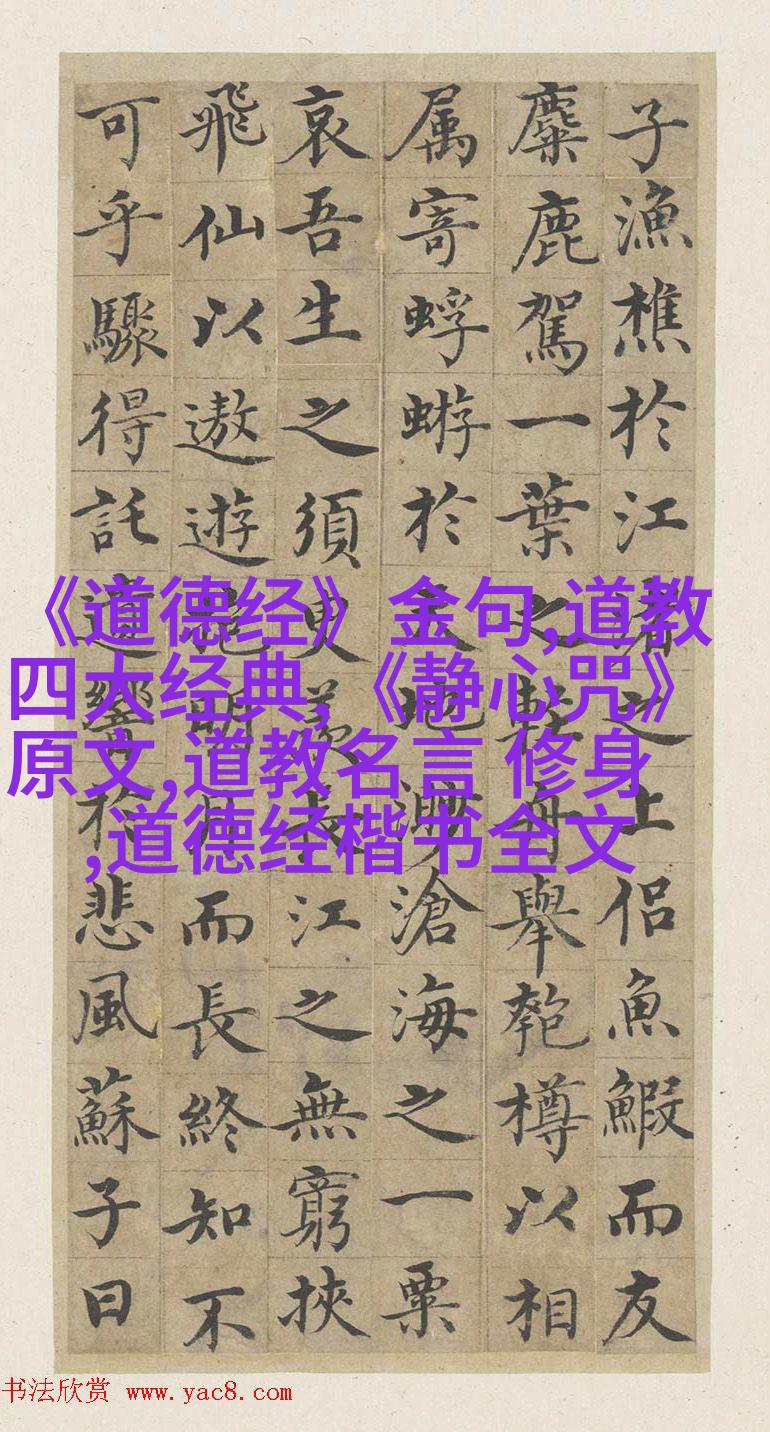 子漁樵於江渚之上侶魚鰕而友
麋鹿駕一葉之輕舟舉匏樽以相
属寄蜉蝣於天地渺滄海之一粟
哀吾生之須臾羨長江之無窮挾
飛仙以遨遊抱明月而長終知不
可乎驟得託遺響於悲風蘇子曰
《道德经》金句,道教
四大经典,《静心咒》
原文,道教名言 修身
,道德经楷书全文
书法欣赏 www.yac8.com